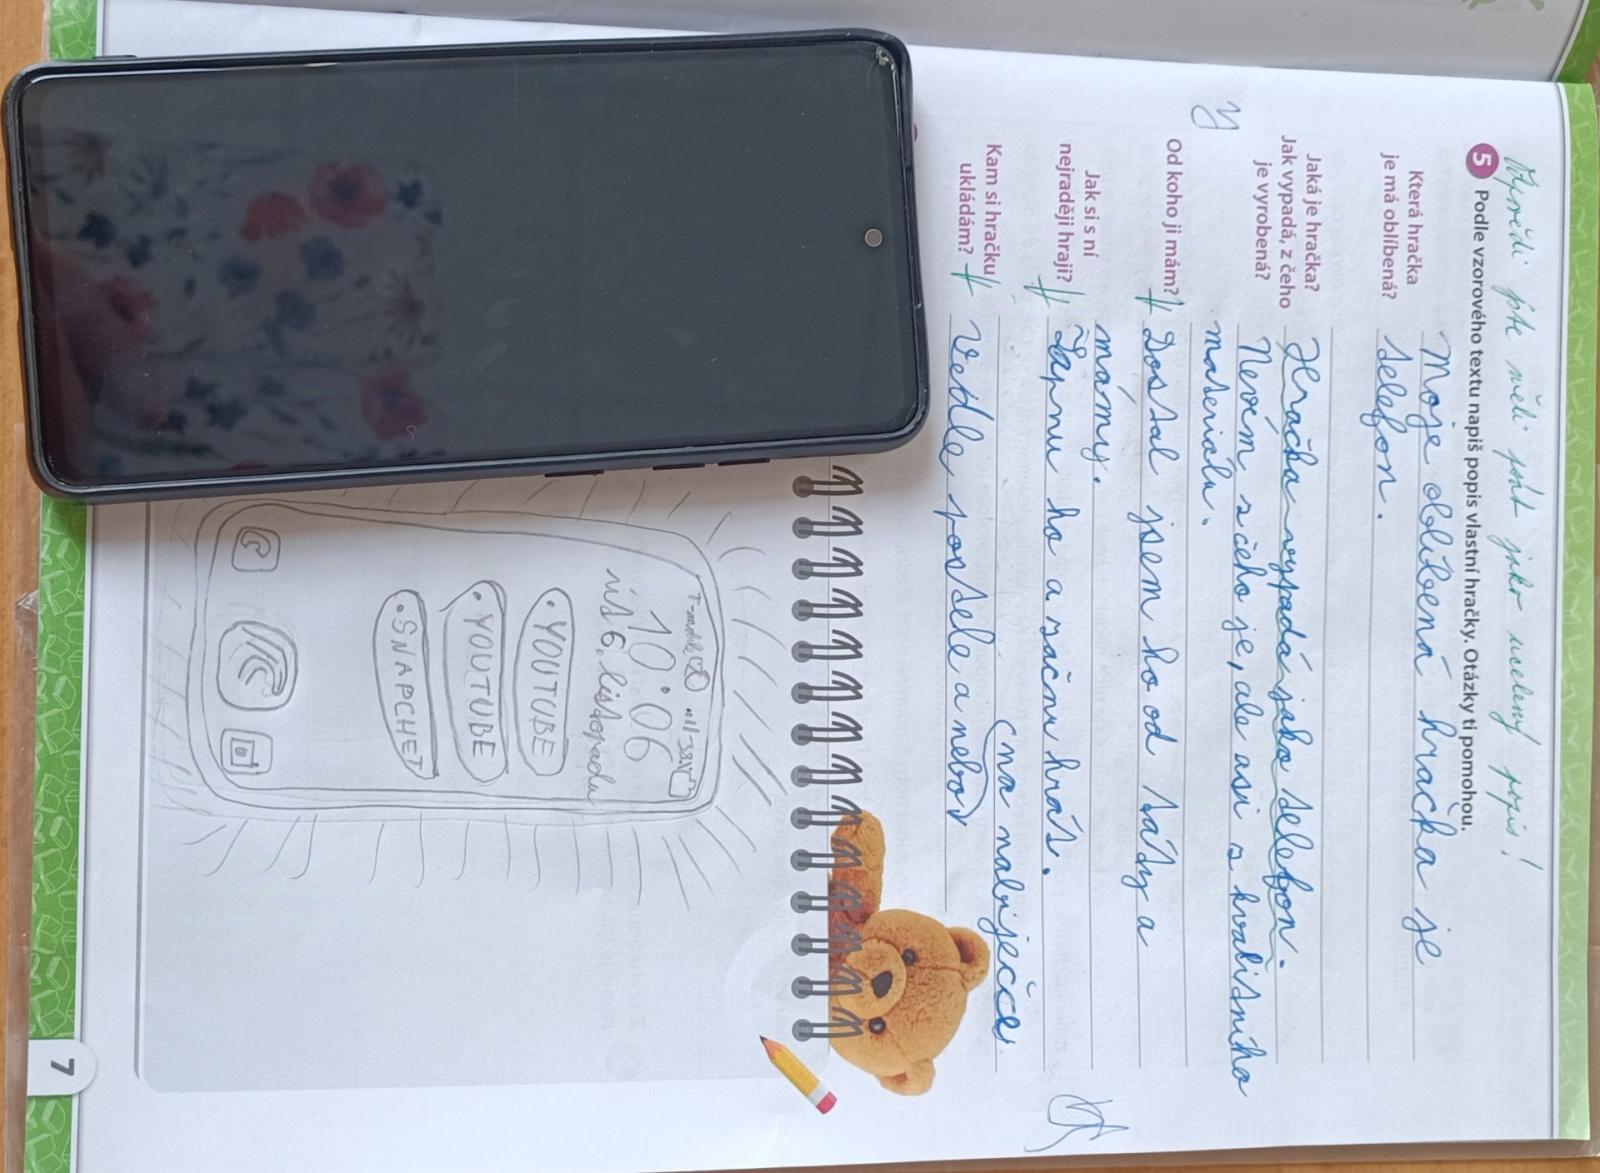 Odpovědi jste měli psát jako ucelený popis!
5 Podle vzorového textu napiš popis vlastní hračky. Otázky ti pomohou.
Která hračka
je má oblíbená?
Moje oblíbená hračka je
telefon.
Jaká je hračka?
Jak vypadá, z čeho
je vyrobená?
Hračka vypadá jako telefon.
Nevím z čeho je, ale asi z kvalitního
materiálu.
Od koho ji mám?
Dostal jsem ho od táty a
mámy.
Jak si s ní
nejraději hraji?
Zapnu ho a začnu hrát.
Kam si hračku
ukládám?
(na nabíječce
Vedle postele a nebo
T-mobile
38%
10:06
út 6. listopadu
YOUTUBE
YOUTUBE
SNAPCHET
7